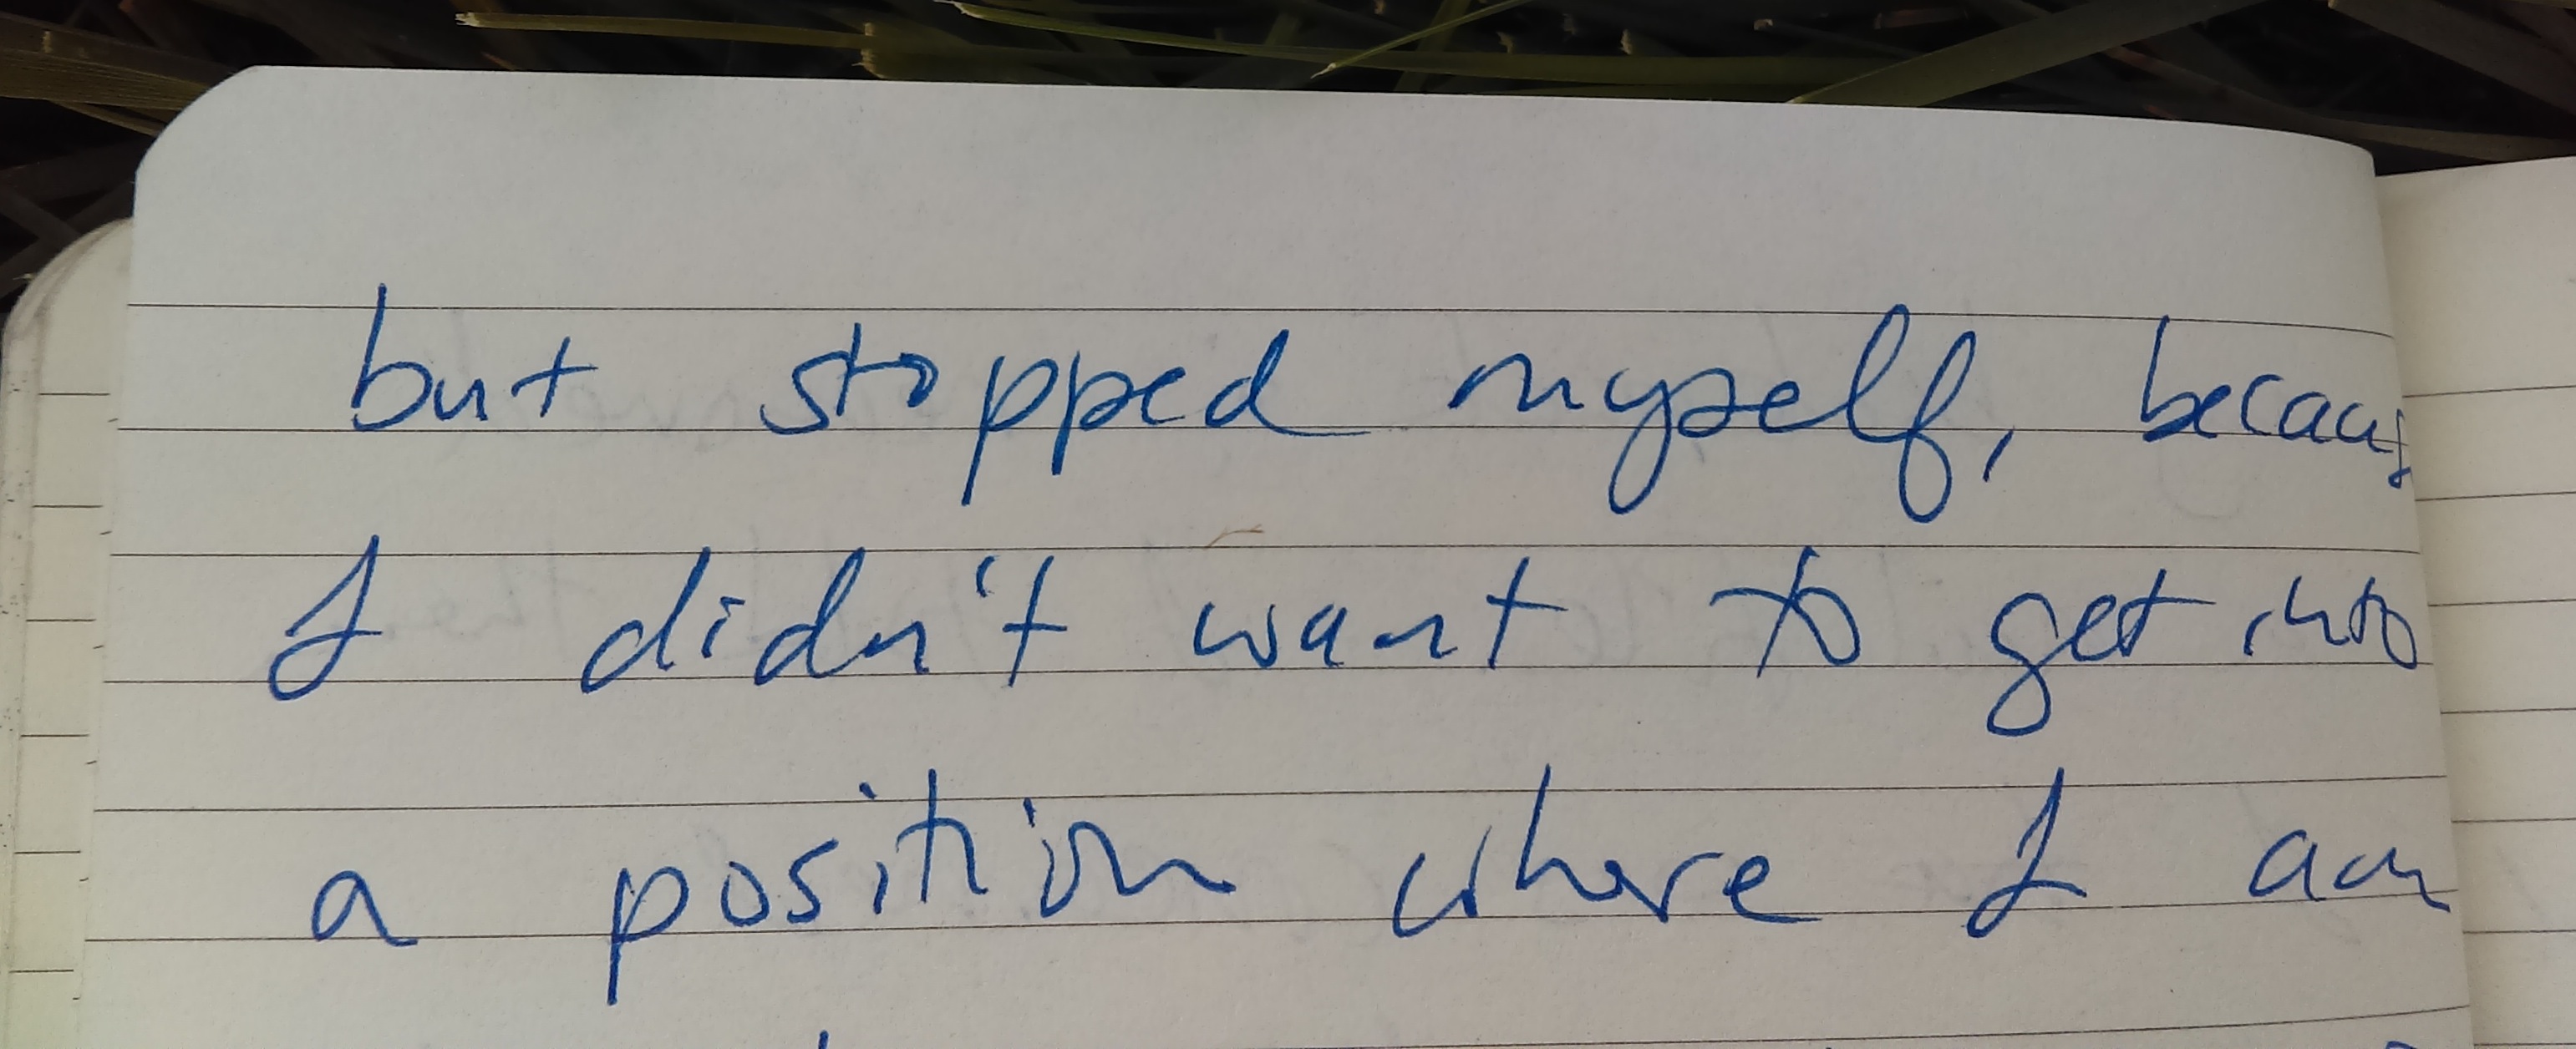 but stopped myself, because
I didn't want to get into
a position where I am